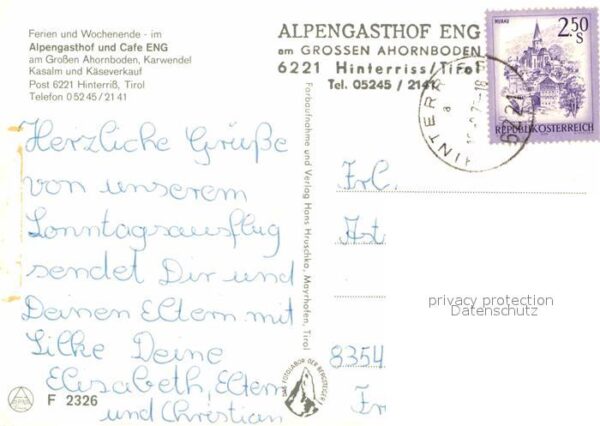 Ferien und Wochenende - im
Alpengasthof und Cafe ENG
am Großen Ahornboden, Karwendel
Kasalm und Käseverkauf
Post 6221 Hinterriß, Tirol
Telefon 0 52 45 / 21 41
ALPENGASTHOF ENG
am GROSSEN AHORNBODEN
6221 Hinterriss/Tirol
Tel. 05245 / 2141
2.50 S
REPUBLIK ÖSTERREICH
6221
Herzliche Grüße
von unserem
Sonntagsausflug
sendet Dir und
Deinen Eltern mit
Silke Deine
Elisabeth, Eltern
und Christian
F 2326
Farbaufnahme und Verlag Hans Hruschka, Mayrhofen, Tirol
DAS FOTOLABOR DER BERGSTEIGER
Frl.
Ast
8354
Fr
privacy protection
Datenschutz